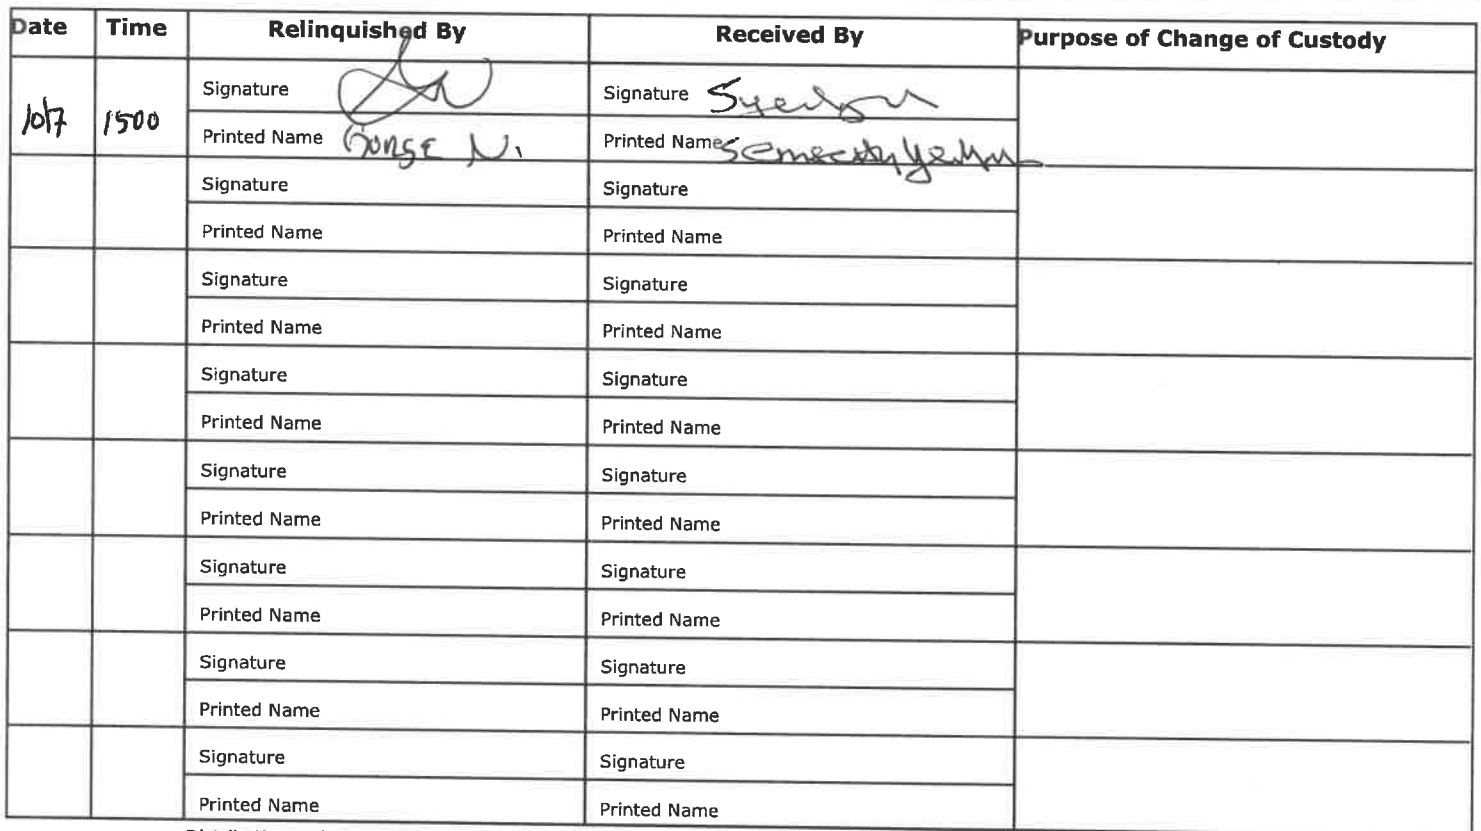 Date Time Relinquished By Received By Purpose of Change of Custody
Signature Signature
10/7 1500
Printed Name George N. Printed Name
Signature Signature
Printed Name Printed Name
Signature Signature
Printed Name Printed Name
Signature Signature
Printed Name Printed Name
Signature Signature
Printed Name Printed Name
Signature Signature
Printed Name Printed Name
Signature Signature
Printed Name Printed Name
Signature Signature
Printed Name Printed Name